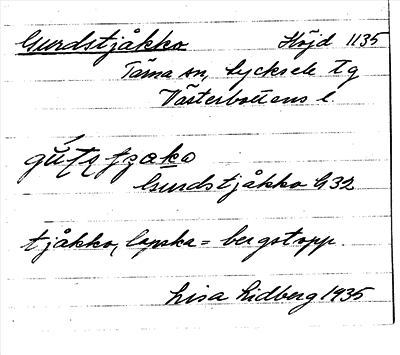 Gurdstjåkko Höjd 1135
Tärna sn, Lycksele tg
Västerbottens l.
Gurdstjåkko G32
tjåkko, lapska = bergstopp.
Lisa Lidberg 1935